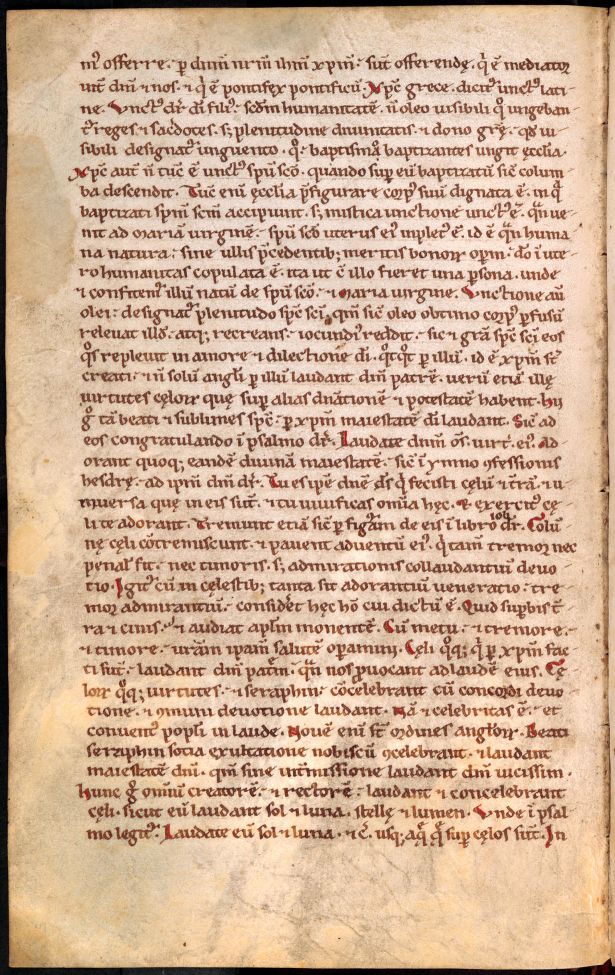 nt᷒ offerre. ꝑ dnm̄ nr̄m ihm̄ xp̄m. sūt offerendę. q̇ ē mediator
int̄ dm̄ ⁊ nos. ⁊ q̇ ē pontifex pontificū. Xp̄c grece. dicit᷒ unct᷒ lati-
ne. Unct᷒ dr̄ dī fili᷒. scdm̄ humanitatē. ñ oleo visibili q̊ ungeban-
t᷒ reges ⁊ sac̄dotes. s; plenitudine divinitatis. ⁊ dono grę̄. q̄ vi-
sibili designat᷒ unguento. q̊ baptismā baptizantes ungit ęcclia.
Xp̄c aut̄ ñ tūc ē unct᷒ spū scō. quando suꝑ eū baptizatū sic̄ colum
ba descendit. Tūc enī ęcclia p̄figurare corp᷒ suū dignata ē. in q̊
baptizati spm̄ scm̄ accipiunt. s; mistica unctione unct᷒ ē. qn̄ ve-
nit ad mariā virginē. spū scō uterus ei᷒ inplet᷒ ē. id ē qn̄ huma
na natura. sine ullis p̄cedentib; meritis bonoꝝ opm̄. dō i ute-
ro humanitas copulata ē. ita ut c̄ illo fieret una ꝑsona. unde
⁊ confitem᷒ illū natū de spū scō. ⁊ maria virgine. Unctione aū
olei. designat᷒ plenitudo spc̄ sci. qm̄ sic̄ oleo obtimo corp᷒ ꝑfusū
relevat illd̄. atq; recreans ⁊ iocundi᷒ reddit. sic ⁊ grā spc̄ sci eos
q̊s replevit in amore ⁊ dilectione dī. q̊tq̊t ꝑ illū. id ē xp̄m sī
creati. ⁊ ñ solū angli ꝑ illū laudant dm̄ patrē. verū etiā illę
virtutes cęloꝝ quę suꝑ alias dn̄ationē ⁊ potestatē habent. hii
g̊ tā beati ⁊ sublimes spc̄. ꝑ xp̄m maiestatē dī laudant. Sic̄ ad
eos congratulando i psalmo dr̄. Laudate dnm̄ om̄s. virt. ei᷒. Ad
orant quoq; eandē divinā maiestatē. sic̄ i ymno ꝯfessionis
hesdrę. ad ipm̄ dm̄ dr̄. Tu es ipse dnē ds̄ q̇ fecisti cęlū ⁊ t̄rā. ⁊ u-
niversa que in eis sūt. ⁊ tu vivificas omia hęc. ⁊ exercit᷒ cę-
li te adorant. Tremunt etiā sic̄ ꝑ figurā de eis i libro iob dr̄. Colū-
nę cęli cōtremiscunt. ⁊ pavent adventū ei᷒. q̇ tam̄ tremor nec
penal᷒ fit. nec timoris. s; admirationis collaudantiū devo-
tio. Igit᷒ cū in celestib; tanta sit adorantiū veneratio. tre
mor admirantiū. consid̄et hęc hō cui dictū ē. Quid supbis t̄-
ra ⁊ cinis. ⁊ audiat aplm̄ monentē. Cū metu. ⁊ tremore.
⁊ timore. vrām ipam̄ salutē opamini. Cęli q̊q; q̇ ꝑ xp̄m fac
ti sūt. laudant dm̄ patrm̄. qn̄ nos ꝓvocant ad laudē eius. Cę-
loꝝ q̊q; virtutes. ⁊ seraphin. cōcelebrant cū concordi devo
tione. ⁊ ꝯmuni devotione laudant. Nā ⁊ celebritas ē. et
convent᷒ popli in laude. Novē enī sī ordines angloꝝ. Beati
seraphin sotia exultatione nobiscū ꝯcelebrant. ⁊ laudant
maiestatē dnī. qm̄ sine int̄missione laudant dm̄ vicissim.
Hunc g̊ omniū creatorē. ⁊ rectorē. laudant ⁊ concelebrant
cęli. sicut eū laudant sol ⁊ luna. stellę ⁊ lumen. Unde i psal
mo legit᷒. Laudate eū sol ⁊ luna. ⁊ c̄. usq; aq̄ q̄ suꝑ cęlos sūt. In